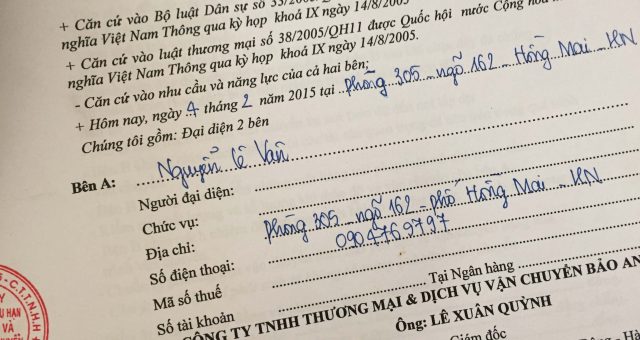 + Căn cứ vào Bộ luật Dân sự số 33/2005/
nghĩa Việt Nam Thông qua kỳ họp khoá IX ngày 14/8/2005
+ Căn cứ vào luật thương mại số 38/2005/QH11 được Quốc hội nước Cộng hòa
nghĩa Việt Nam Thông qua kỳ họp khoá IX ngày 14/8/2005.
- Căn cứ vào nhu cầu và năng lực của cả hai bên;
+ Hôm nay, ngày 4 tháng 2 năm 2015 tại phòng 305 - ngõ 162 - Hồng Mai - HN
Chúng tôi gồm: Đại diện 2 bên
Bên A: Nguyễn Lê Vân
Người đại diện:
Chức vụ:
Địa chỉ: phòng 305 ngõ 162 - phố Hồng Mai - HN
Số điện thoại: 0904769797
Mã số thuế
Số tài khoản Tại Ngân hàng
CÔNG TY TNHH THƯƠNG MẠI & DỊCH VỤ VẬN CHUYỂN BẢO AN
Ông: LÊ XUÂN QUỲNH
Giám đốc